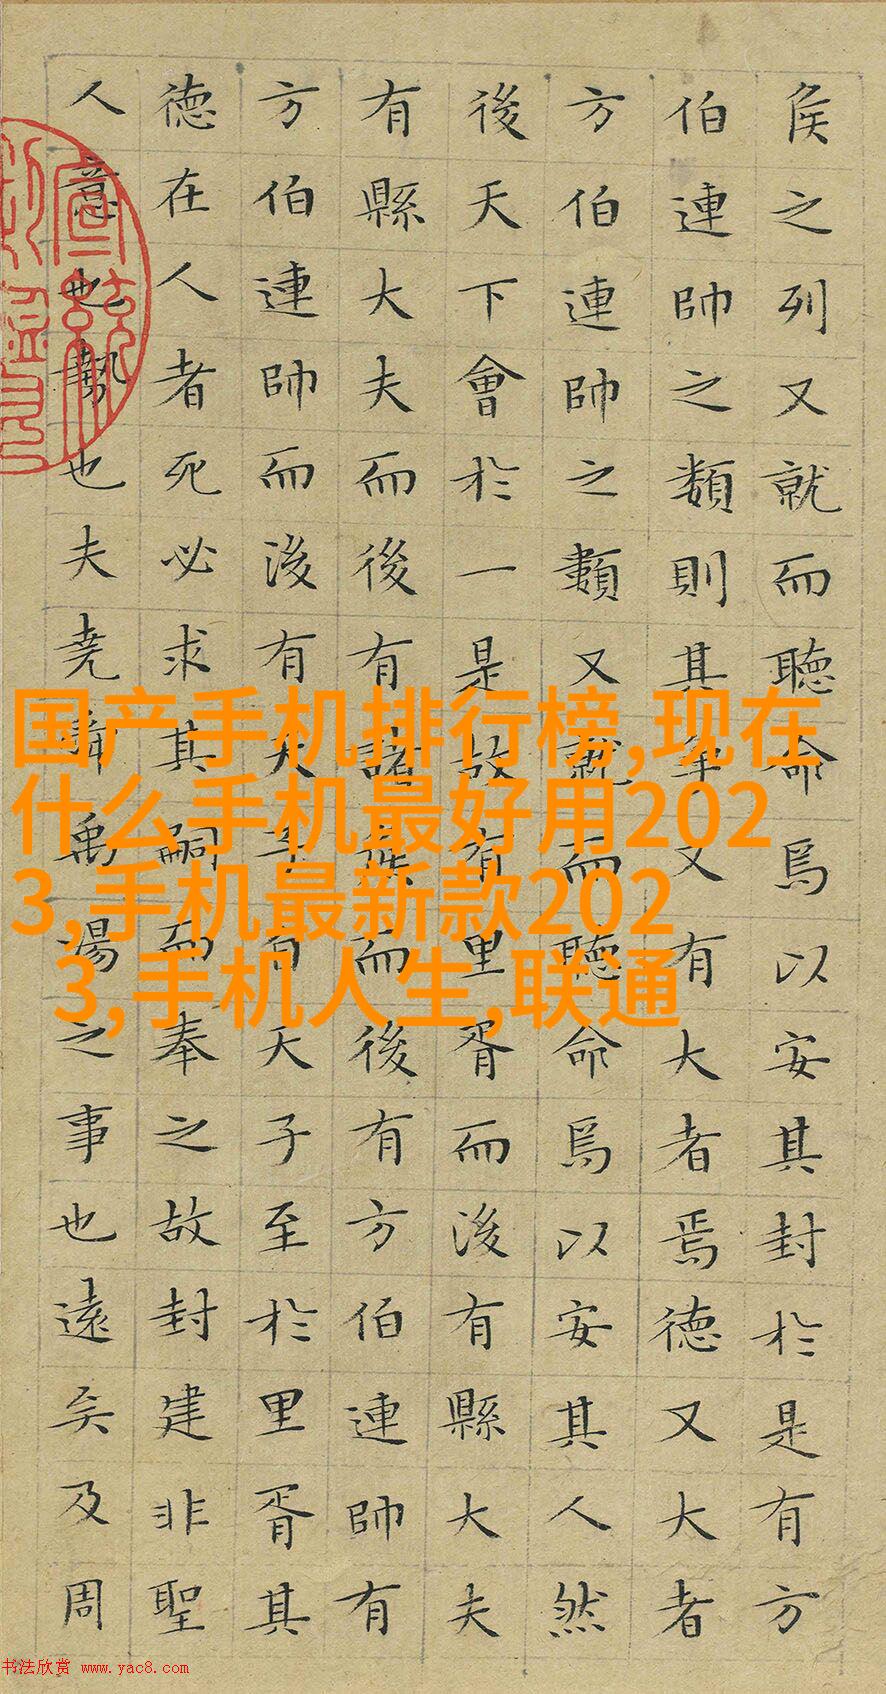 侯之列又就而聽命焉以安其封於是有方
伯連帥之類則其爭又有大者焉德又大者
方伯連帥之類又就而聽命焉以安其人然
後天下會於一是故有里胥而後有縣大夫
有縣大夫而後有諸侯而後有方伯連帥有
方伯連帥而後有天子自天子至於里胥其
德在人者死必求其嗣而奉之故封建非聖
人意也勢也夫堯舜禹湯之事也遠矣及周
国产手机排行榜,现在
什么手机最好用202
3,手机最新款202
3,手机人生,联通
书法欣赏 www.yac8.com